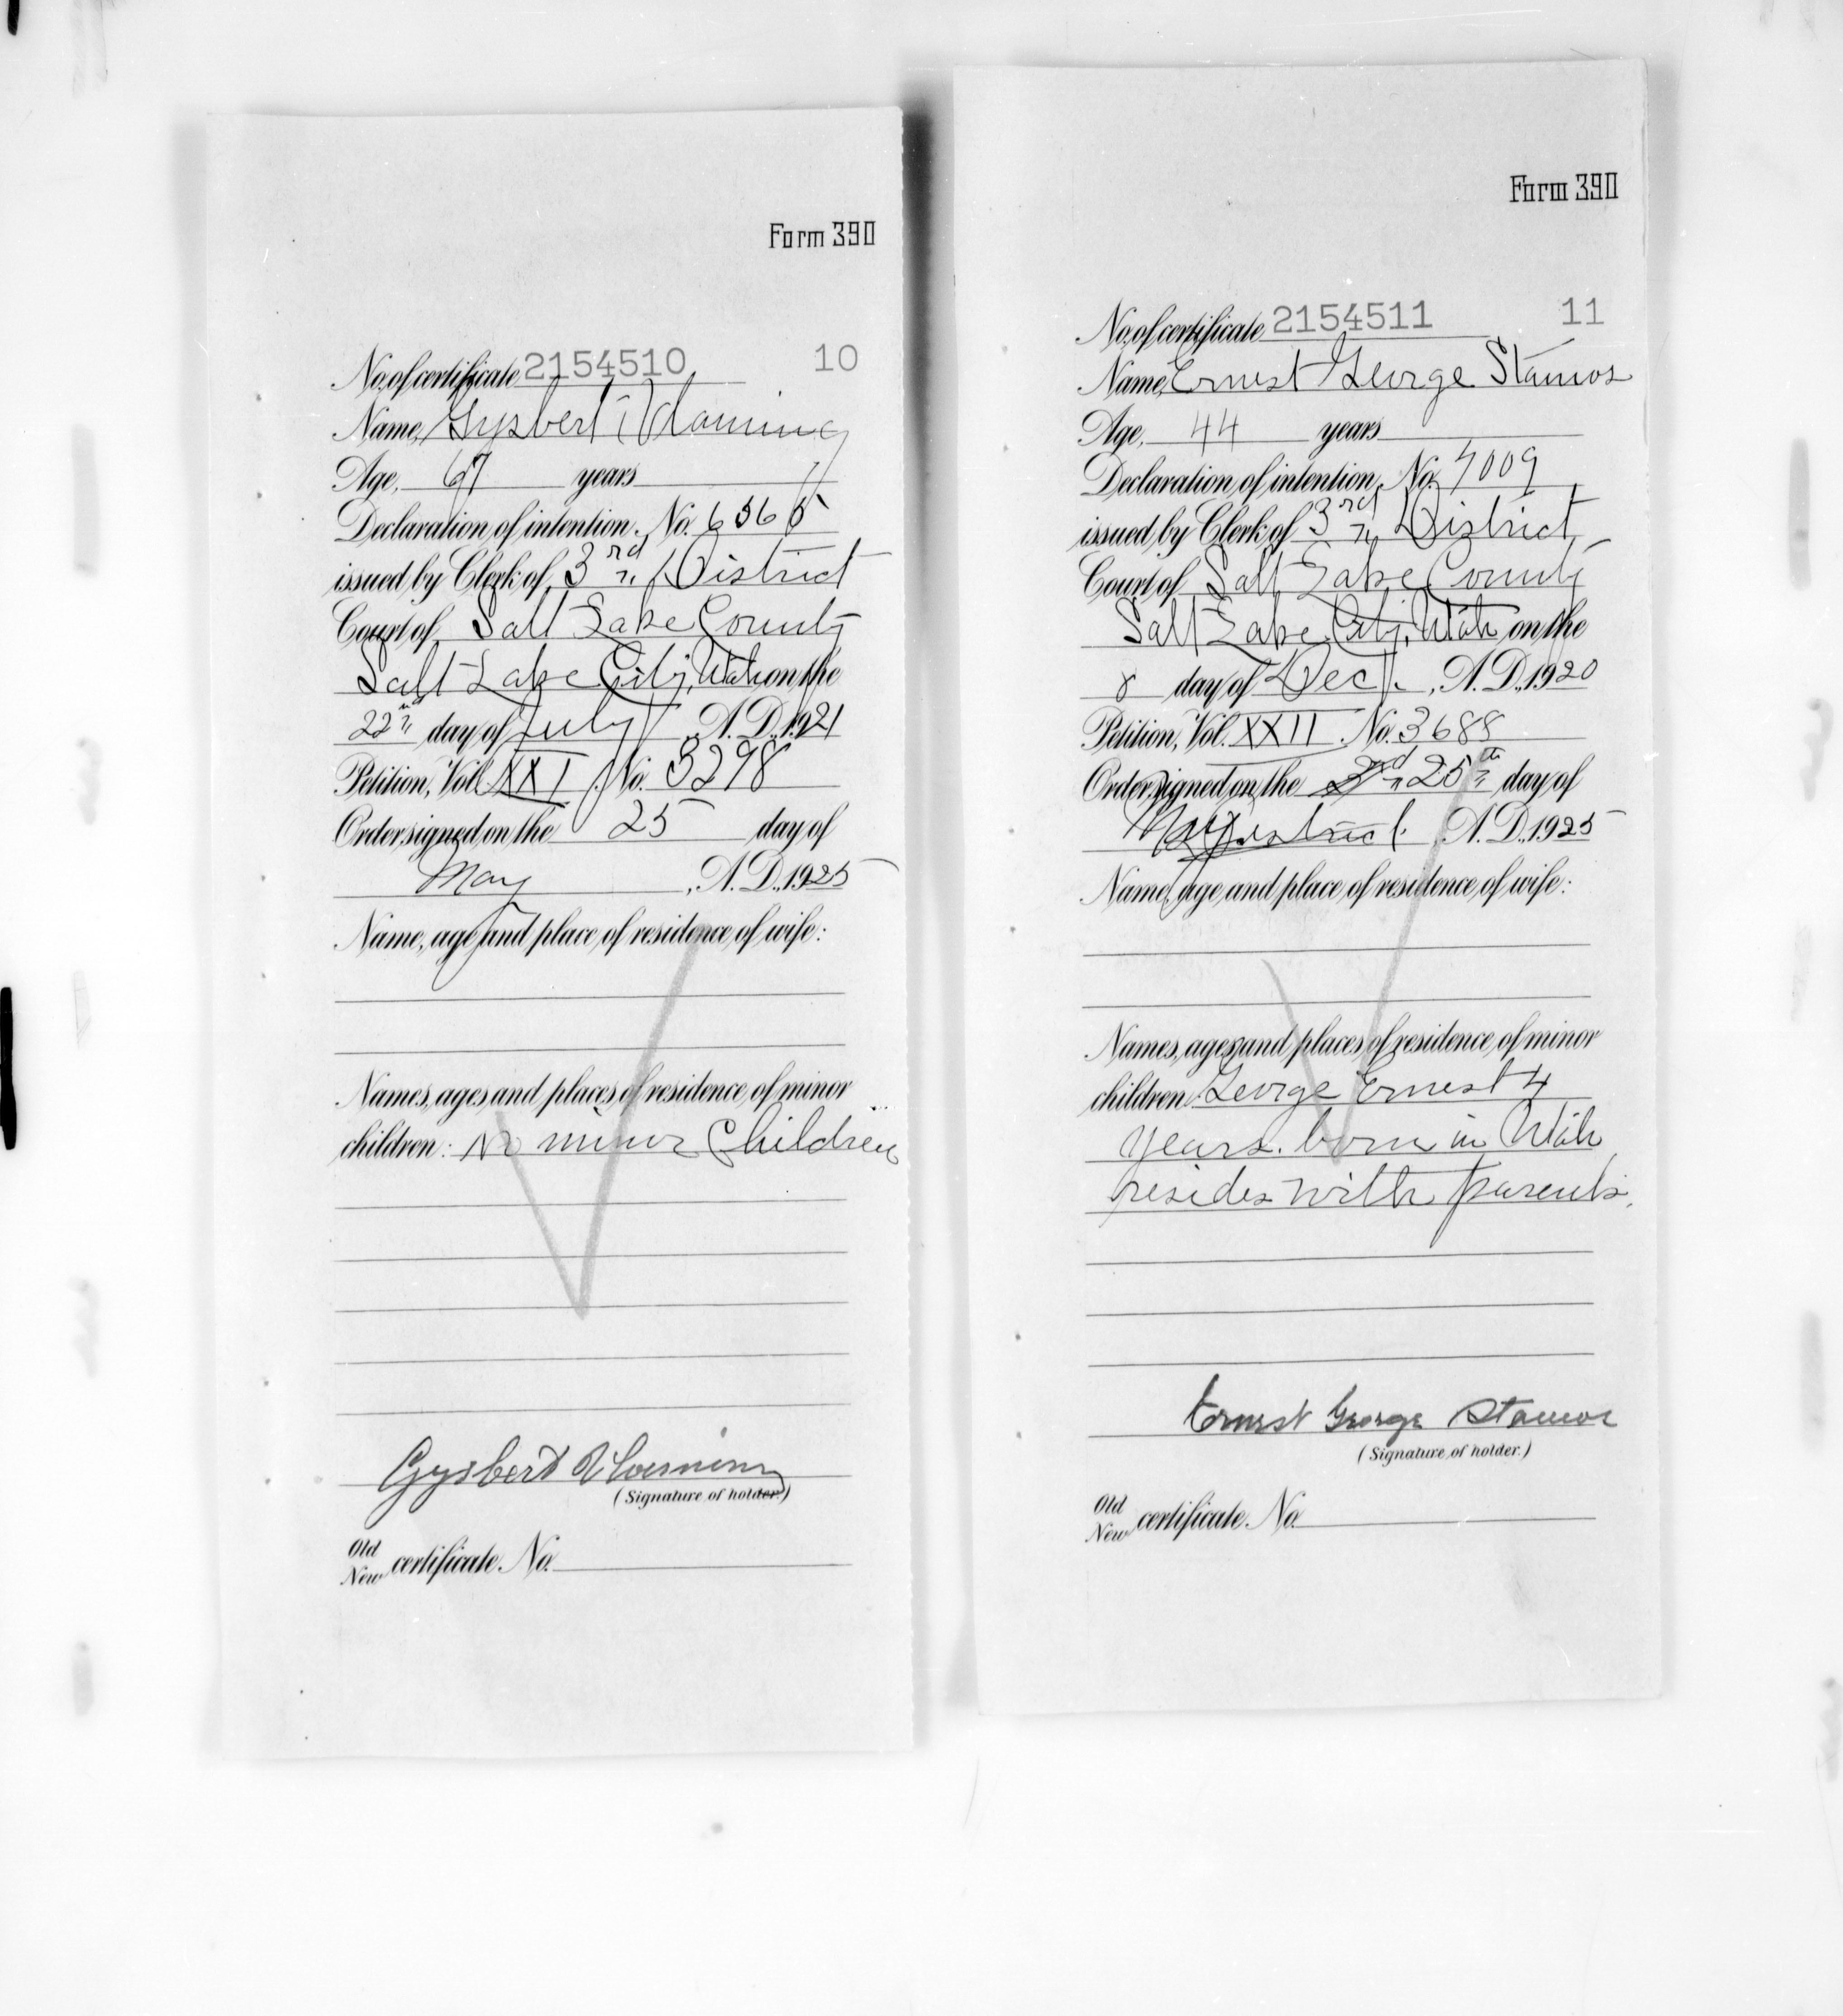 Form 390
No. of certificate 2154510 10
Name, Gysbert Vlaming
Age, 67 years
Declaration of intention, No. 6565
issued by Clerk of 3rd District
Court of Salt Lake County
Salt Lake City, Utah on the
22nd day of July, A. D., 1921
Petition, Vol. XXI. No. 3298
Order signed on the 25 day of
May, A. D., 1925
Name, age and place of residence of wife:
Names, ages and places of residence of minor
children: No minor Children
Gysbert Vlaming
(Signature of holder.)
Old
New certificate No.
Form 390
No. of certificate 2154511 11
Name, Ernest George Stamos
Age, 44 years
Declaration of intention, No. 7009
issued by Clerk of 3rd District
Court of Salt Lake County
Salt Lake City, Utah on the
8 day of Dec., A. D., 1920
Petition, Vol. XXII. No. 3688
Order signed on the 25th day of
May A. D., 1925
Name, age and place of residence of wife:
Names, ages and places of residence of minor
children: George Ernest 4
years. born in Utah
resides with parents.
Ernest George Stamos
(Signature of holder.)
Old
New certificate No.